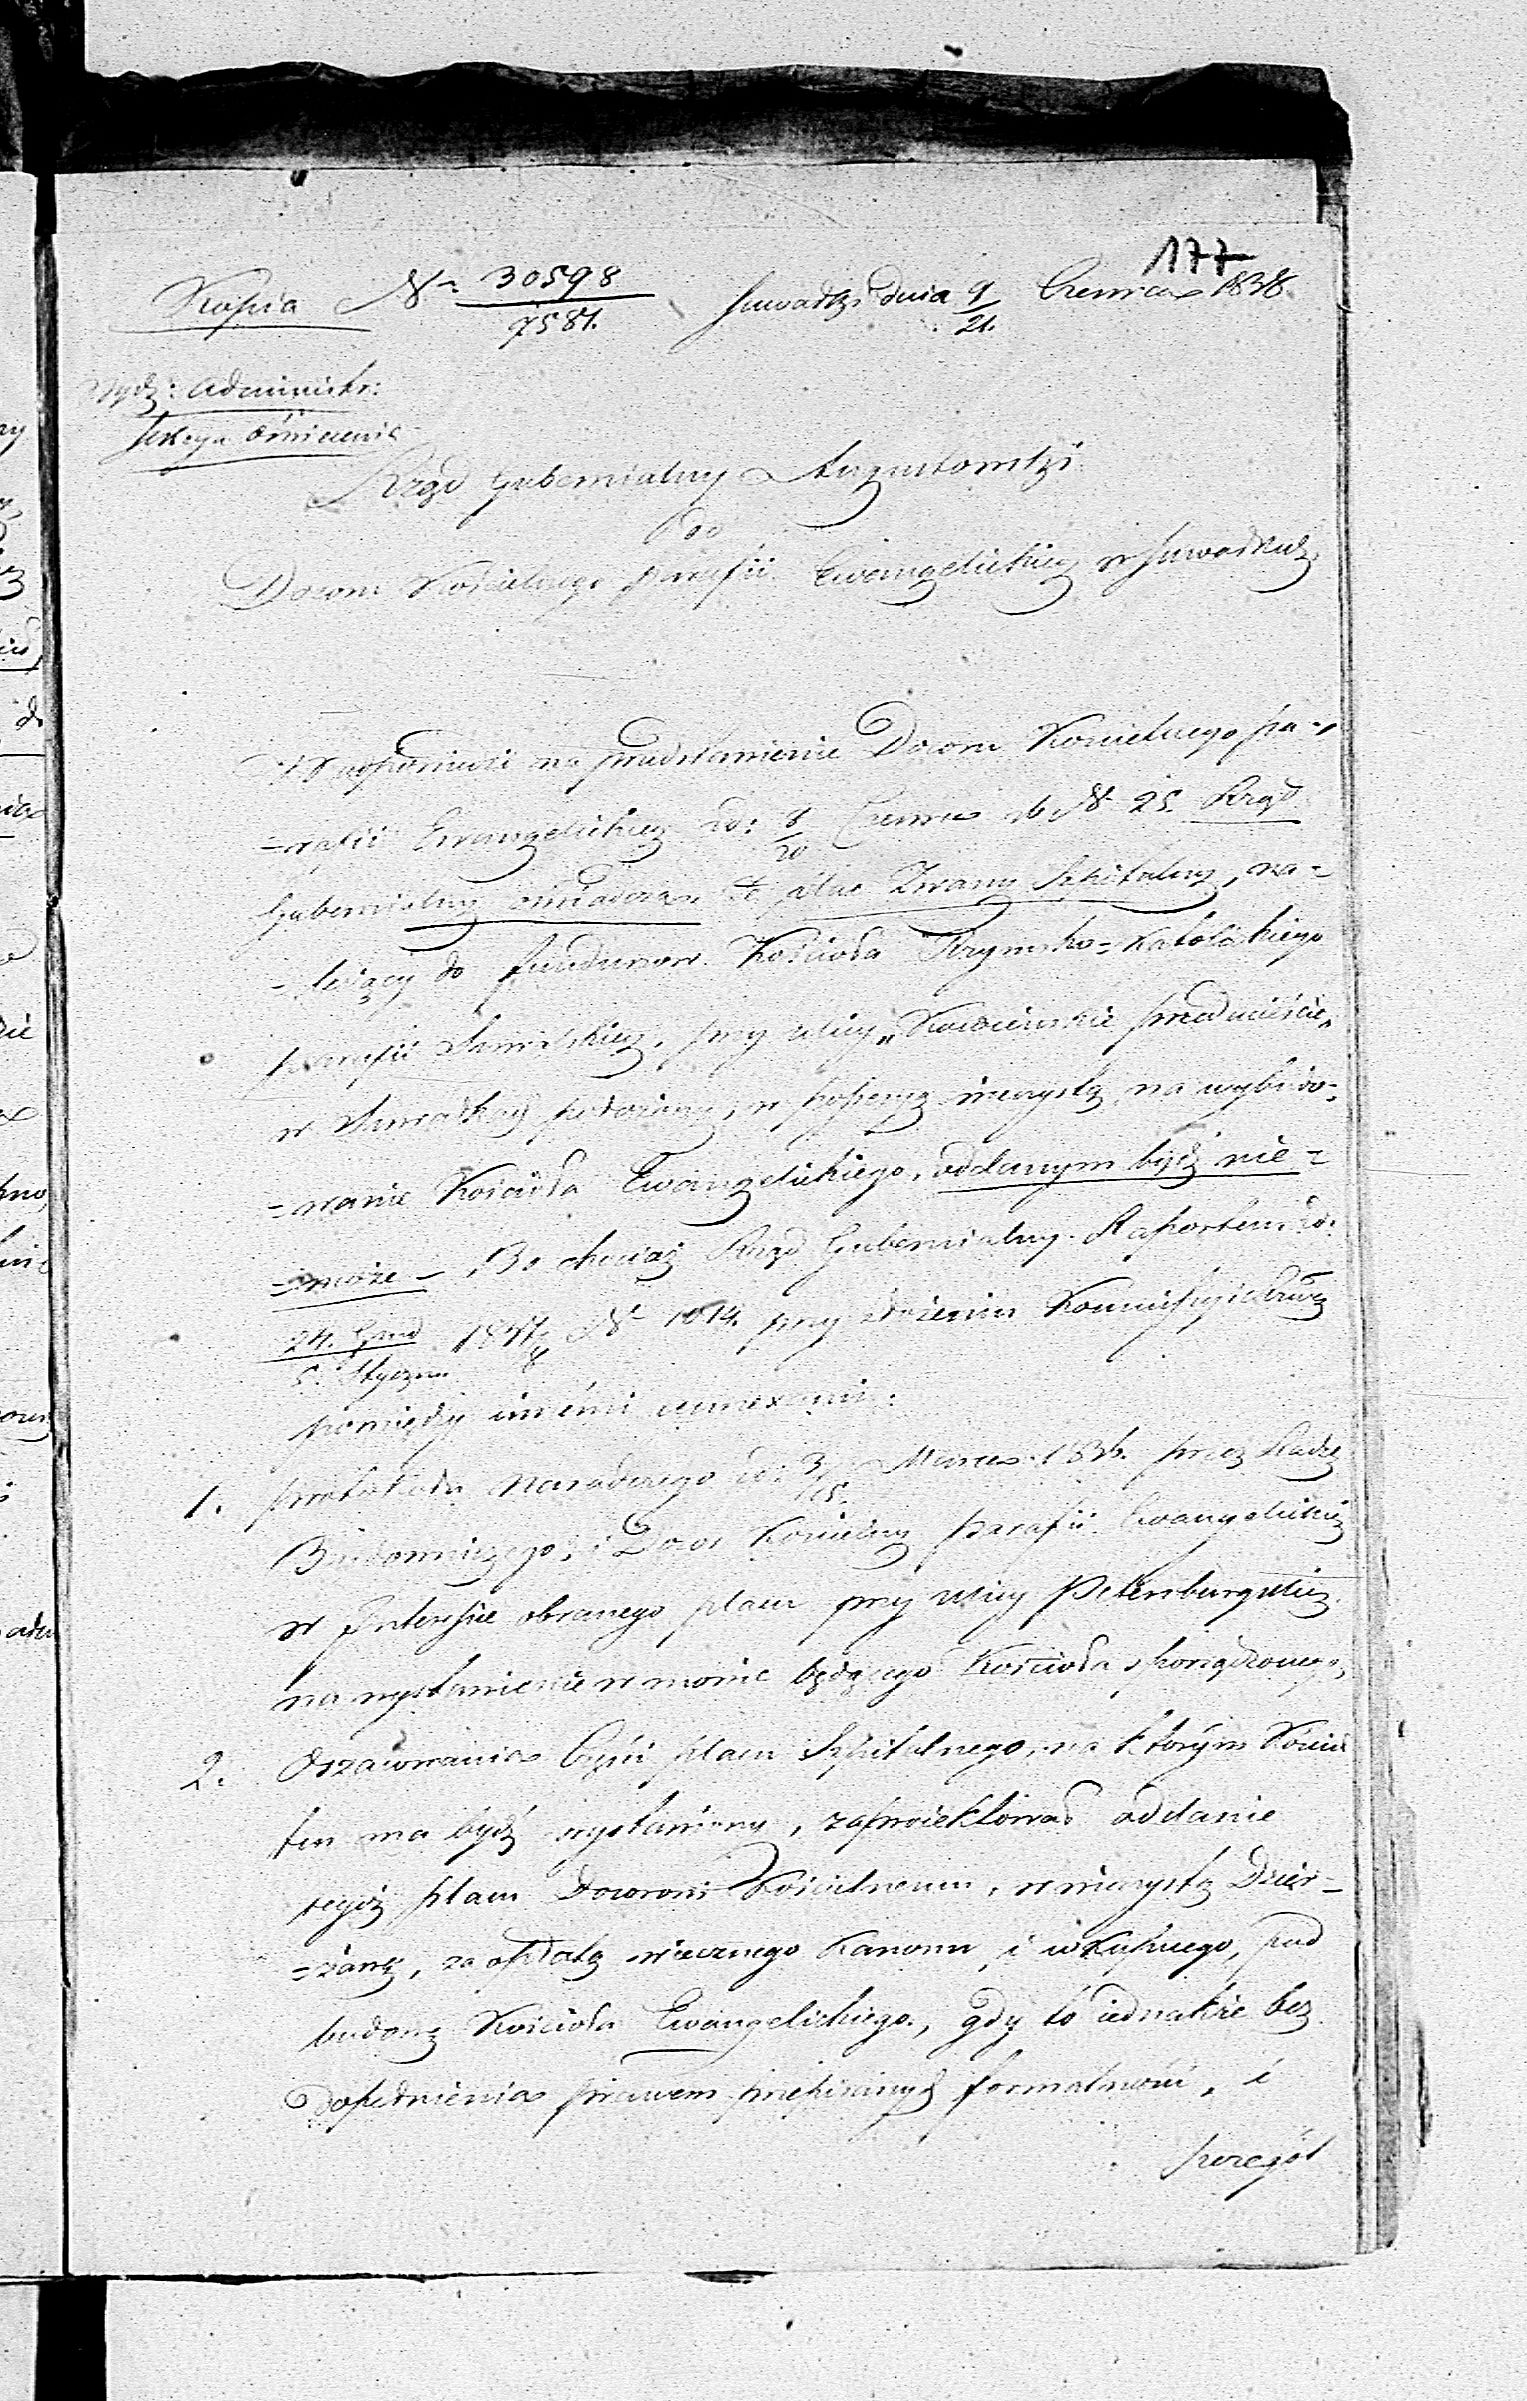 177
Kopia № 30598 Suwałki dnia 9 Czerwca 1838.
9581. 21.
Wydz: Administr:
Sekcya Oświecenia
Rząd Gubernialny Augustowski
Do
Dozoru Kościelnego parafii Ewangelickiey w Suwałkach
W odpowiedzi na przedstawienie Dozoru Kościelnego pa-
-rafii Ewangelickiey do: 8/20 Czerwca rb № 25. Rząd
Gubernialny oświadcza, że plac zwany Szpitalny, na-
-leżący do funduszow Kościoła Rzymsko-Katolickiego
parafii Suwalskiey, przy ulicy „Kowieńskie przedmieście„
w Suwałkach położony, w posessyą wieczystą na wybudo-
-wanie Kościoła Ewangelickiego, oddanym bydź nie-
-może – Bo chociaż Rząd Gubernialny Raportem do:
24. Grud 1837/8 № 1014. przy złożeniu Kommissyi
5. Stycznia
pomiędzy innémi annexami:
1. protokułu naradczego do: 3/15. Marca 1836. przez Radzę
Budowniczego, i Dozor Kościelny parafii Ewangelickiey
w Interessie obranego placu przy ulicy Petersburgskiey
na wystawienie w mowie będącego Kościoła sporządzonego,
2. Oszacowania Części placu Szpitalnego, na którym Kościół
ten ma bydź wystawiony, zaproiektował oddanie
tegoż placu Dozorowi Kościelnemu, w wieczystą Dzier-
-żawę, za opłatą wiecznego Kanonu, i wkupnego, pod
budowę Kościoła Ewangelickiego, gdy to iednakże bez
Dopełnienia prawem przepisanych formalności, i